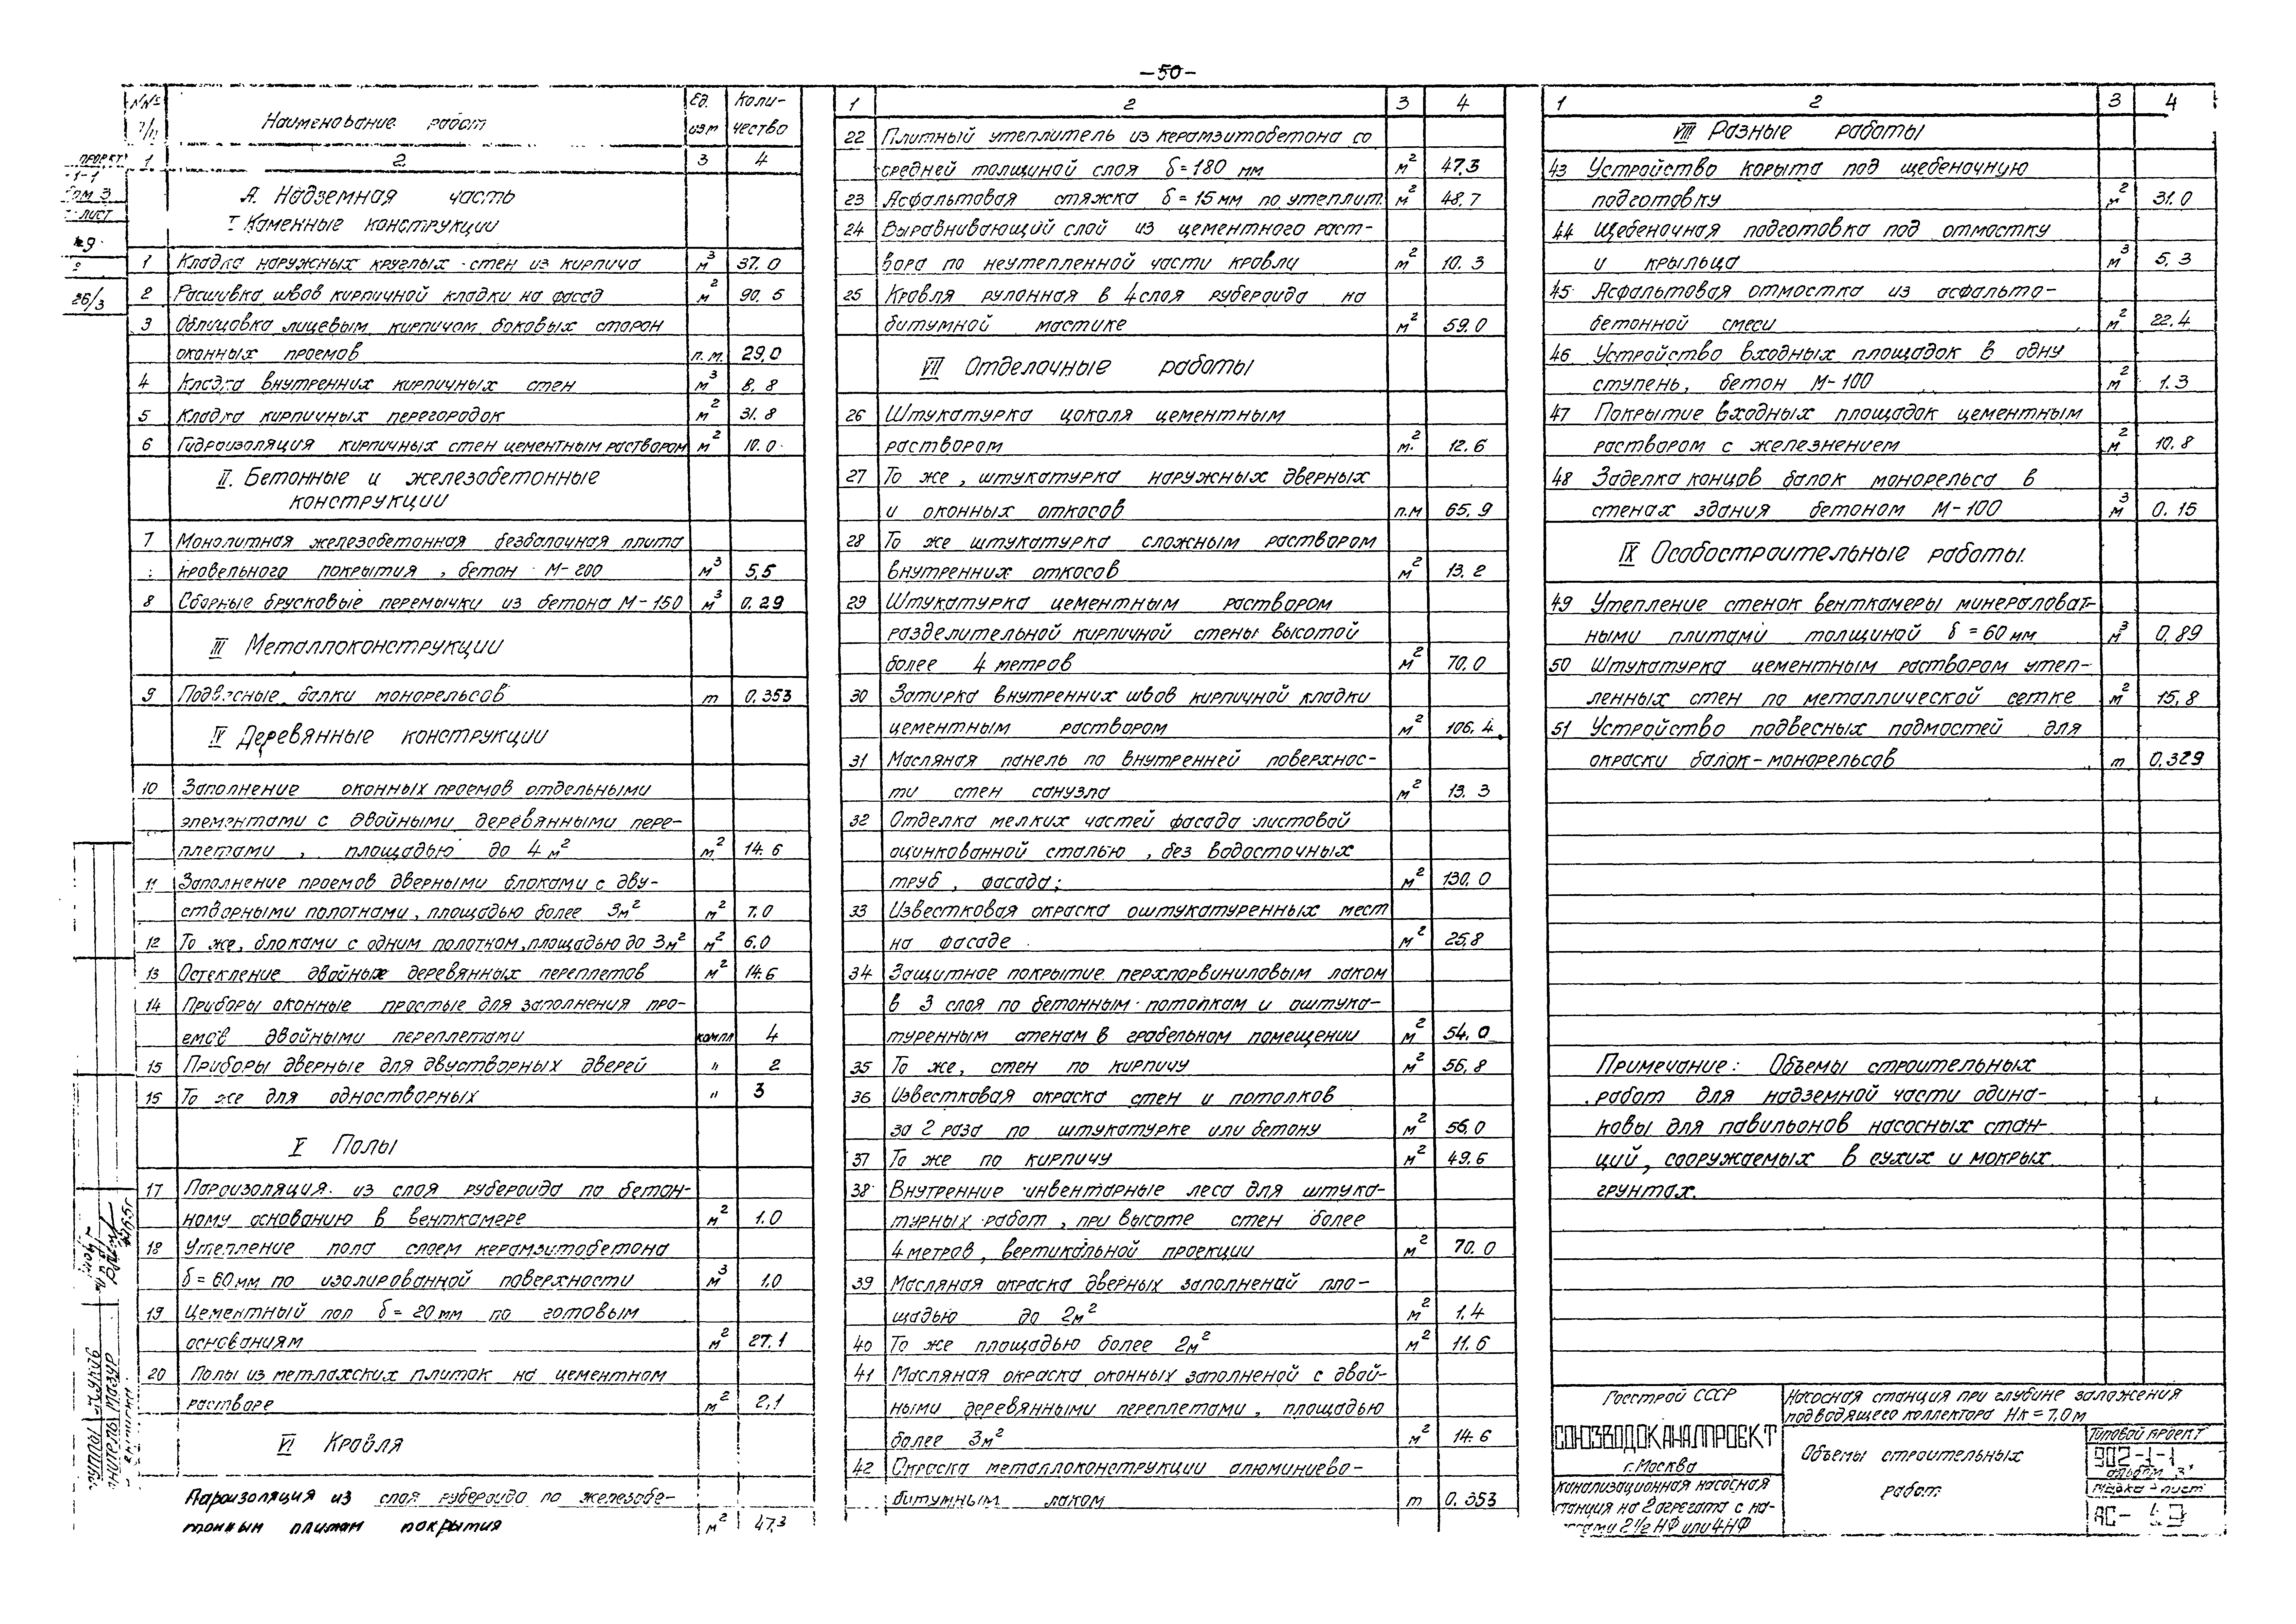 -50-
NNº п/п Наименование работ Ед. изм Коли-чество
1 2 3 4
А. Надземная часть
I Каменные конструкции
1 Кладка наружных круглых стен из кирпича м³ 37.0
2 Расшивка швов кирпичной кладки на фасад м² 90.5
3 Облицовка лицевым кирпичом боковых сторон
оконных проемов п.м. 29.0
4 Кладка внутренних кирпичных стен м³ 8.8
5 Кладка кирпичных перегородок м² 31.8
6 Гидроизоляция кирпичных стен цементным раствором м² 10.0
II. Бетонные и железобетонные
конструкции
7 Монолитная железобетонная безбалочная плита
кровельного покрытия, бетон М-200 м³ 5,5
8 Сборные брусковые перемычки из бетона М-150 м³ 0.29
III Металлоконструкции
9 Подвесные балки монорельсов т 0.353
IV Деревянные конструкции
10 Заполнение оконных проемов отдельными
элементами с двойными деревянными пере-
плетами, площадью до 4 м² м² 14.6
11 Заполнение проемов дверными блоками с дву-
створными полотнами, площадью более 3м² м² 7.0
12 То же, блоками с одним полотном, площадью до 3м² м² 6.0
13 Остекление двойных деревянных переплетов м² 14.6
14 Приборы оконные простые для заполнения про-
емов двойными переплетами компл 4
15 Приборы дверные для двустворных дверей " 2
16 То же для одностворных " 3
V Полы
17 Пароизоляция из слоя рубероида по бетон-
ному основанию в венткамере м² 1.0
18 Утепление пола слоем керамзитобетона
δ = 60 мм по изолированной поверхности м³ 1.0
19 Цементный пол δ = 20 мм по готовым
основаниям м² 27.1
20 Полы из метлахских плиток на цементном
растворе м² 2,1
VI Кровля
Пароизоляция из слоя рубероида по железобе-
тонным плитам покрытия м² 47.3
1 2 3 4
22 Плитный утеплитель из керамзитобетона со
средней толщиной слоя δ = 180 мм м² 47.3
23 Асфальтовая стяжка δ = 15 мм по утеплит. м² 48.7
24 Выравнивающий слой из цементного раст-
вора по неутепленной части кровли м² 10.3
25 Кровля рулонная в 4 слоя рубероида на
битумной мастике м² 59.0
VII Отделочные работы
26 Штукатурка цоколя цементным
раствором м² 12.6
27 То же, штукатурка наружных дверных
и оконных откосов п.м 65.9
28 То же штукатурка сложным раствором
внутренних откосов м² 13.2
29 Штукатурка цементным раствором
разделительной кирпичной стены высотой
более 4 метров м² 70.0
30 Затирка внутренних швов кирпичной кладки
цементным раствором м² 106.4
31 Масляная панель по внутренней поверхнос-
ти стен санузла м² 13.3
32 Отделка мелких частей фасада листовой
оцинкованной сталью, без водосточных
труб, фасада; м² 130.0
33 Известковая окраска оштукатуренных мест
на фасаде м² 25,8
34 Защитное покрытие перхлорвиниловым лаком
в 3 слоя по бетонным потолкам и оштука-
туренным стенам в грабельном помещении м² 54.0
35 То же, стен по кирпичу м² 56,8
36 Известковая окраска стен и потолков
за 2 раза по штукатурке или бетону м² 56.0
37 То же по кирпичу м² 49.6
38 Внутренние инвентарные леса для штука-
турных работ, при высоте стен более
4 метров, вертикальной проекции м² 70.0
39 Масляная окраска дверных заполнений пло-
щадью до 2м² м² 1.4
40 То же площадью более 2м² м² 11.6
41 Масляная окраска оконных заполненой с двой-
ными деревянными переплетами, площадью
более 3м² м² 14.6
42 Окраска металлоконструкции алюминиево-
битумным лаком т 0.353
1 2 3 4
VIII Разные работы
43 Устройство корыта под щебеночную
подготовку м² 31.0
44 Щебеночная подготовка под отмостку
и крыльца м³ 5.3
45 Асфальтовая отмостка из асфальто-
бетонной смеси м² 22.4
46 Устройство входных площадок в одну
ступень, бетон М-100 м² 1.3
47 Покрытие входных площадок цементным
раствором с железнением м² 10.8
48 Заделка концов балок монорельса в
стенах здания бетоном М-100 м³ 0.15
IX Особостроительные работы.
49 Утепление стенок венткамеры минераловат-
ными плитами толщиной δ = 60 мм м³ 0.89
50 Штукатурка цементным раствором утеп-
ленных стен по металлической сетке м² 15,8
51 Устройство подвесных подмостей для
окраски балок-монорельсов т 0.329
Примечание: Объемы строительных
работ для надземной части одина-
ковы для павильонов насосных стан-
ций, сооружаемых в сухих и мокрых
грунтах.
Госстрой СССР
СОЮЗВОДОКАНАЛПРОЕКТ
г. Москва
Канализационная насосная
станция на 2 агрегата с на-
сосами 2½ НФ или 4НФ
Насосная станция при глубине заложения
подводящего коллектора Нк = 7,0 м
Объемы строительных
работ
Типовой проект
902-1-1
альбом 3
Марка-лист
АС-